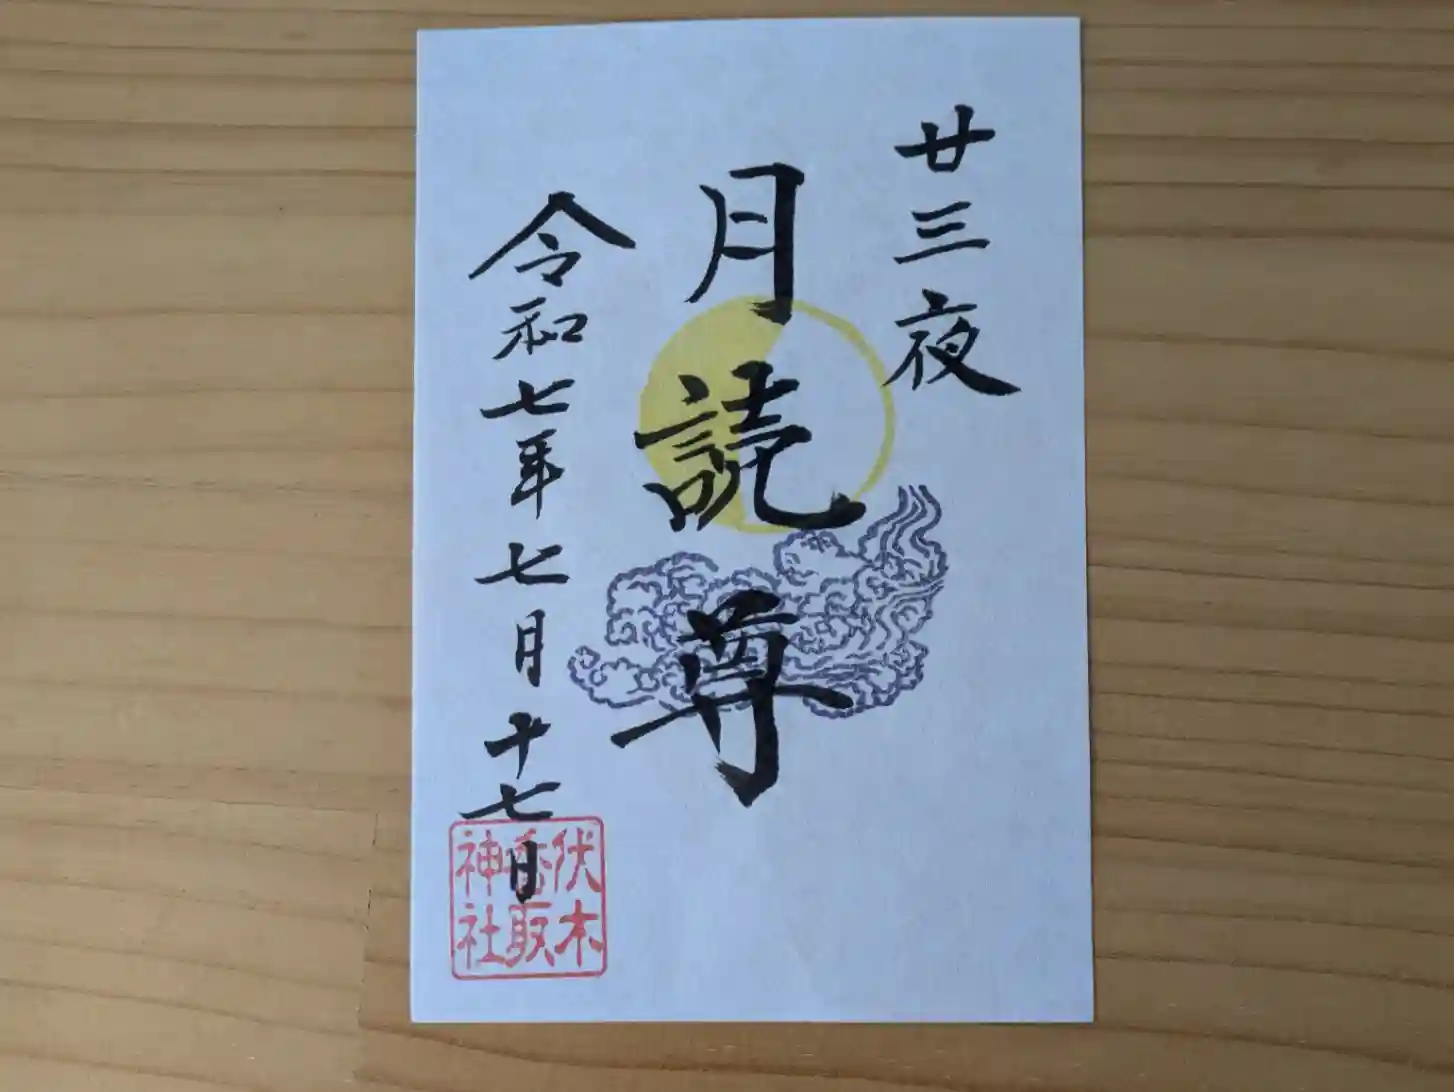 廿三夜
月読尊
令和七年七月十七日
伏木
香取
神社